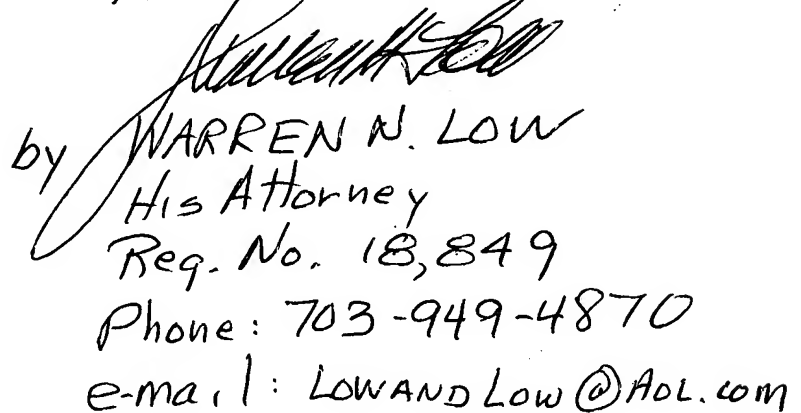 by WARREN N. LOW
His Attorney
Reg. No. 18,849
Phone: 703-949-4870
e-mail: LOWANDLOW@AOL.com